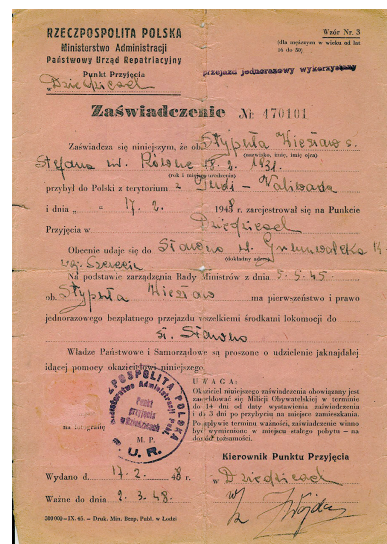 RZECZPOSPOLITA POLSKA
Ministerstwo Administracji
Państwowy Urząd Repatriacyjny
Punkt Przyjęcia
Wzór Nr. 3
(dla mężczyzn w wieku od lat
16 do 50)
przejazd jednorazowy wykorzystany
Zaświadczenie № 470101
Zaświadcza się niniejszym, że ob. Stypuła Wiesław s.
(nazwisko, imię, imię ojca)
Stefana ur. Równe 18.2.1931.
(rok i miejsce urodzenia)
przybył do Polski z terytorium z Indi - Valivade
i dnia 17. 2. 1948 zarejestrował się na Punkcie
Przyjęcia w
Obecnie udaje się do Sławno ul. Grunwaldzka 14
(dokładny adres)
woj. Szczecin
Na podstawie zarządzenia Rady Ministrów z dnia 5. 5. 45.
ob. Stypuła Wiesław ma pierwszeństwo i prawo
jednorazowego bezpłatnego przejazdu wszelkiemi środkami lokomocji do
st. Sławno
Władze Państwowe i Samorządowe są proszone o udzielenie jaknajdalej
idącej pomocy okazicielowi niniejszego.
UWAGA:
Okaziciel niniejszego zaświadczenia obowiązany jest
zameldować się Milicji Obywatelskiej w terminie
do 14 dni od daty wystawienia zaświadczenia
i 3 dni po przybyciu na miejsce zamieszkania.
Po upływie terminu ważności, zaświadczenie winno
być wymienione w miejscu stałego pobytu — na
dowód tożsamości.
na fotografię
M. P.
RZECZPOSPOLITA POLSKA
Ministerstwo Administracji Publ.
Punkt
przyjęcia
P. U. R.
Kierownik Punktu Przyjęcia
Wydano d 17. 2. 48 r. w
Ważne do dnia 2. 3. 48.
300000-IX. 45. - Druk. Min. Bezp. Publ. w Łodzi